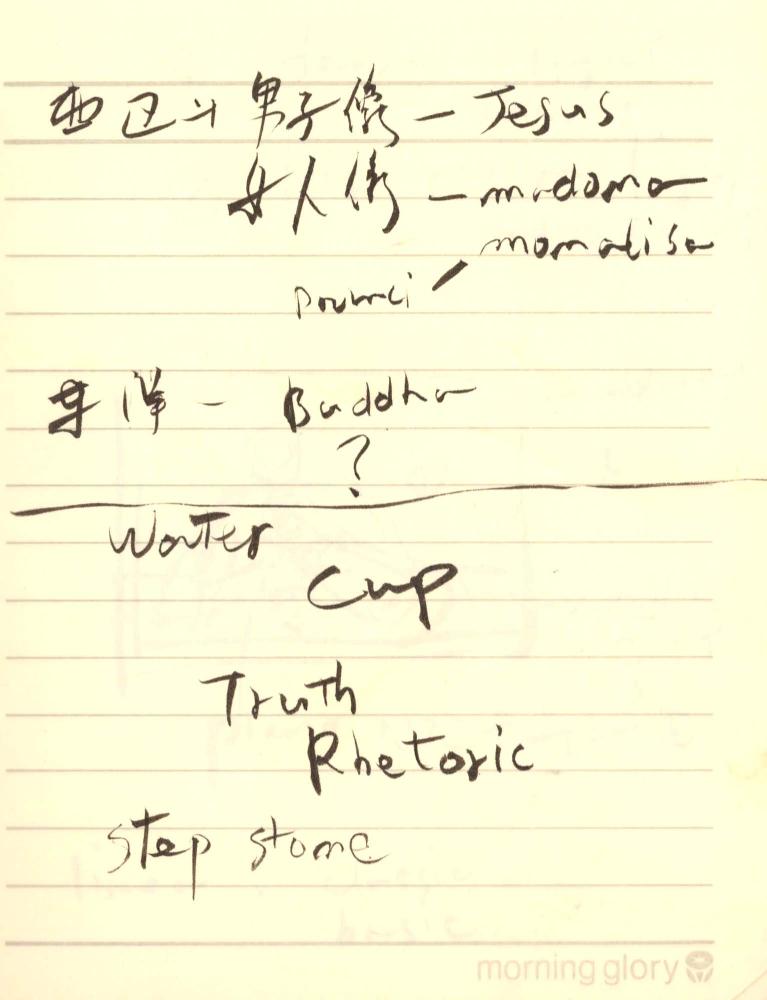 西 男子像 — Jesus
女人像 — madona
monalisa
東洋 — Buddha
?
Water
Cup
Truth
Rhetoric
step stone
morning glory